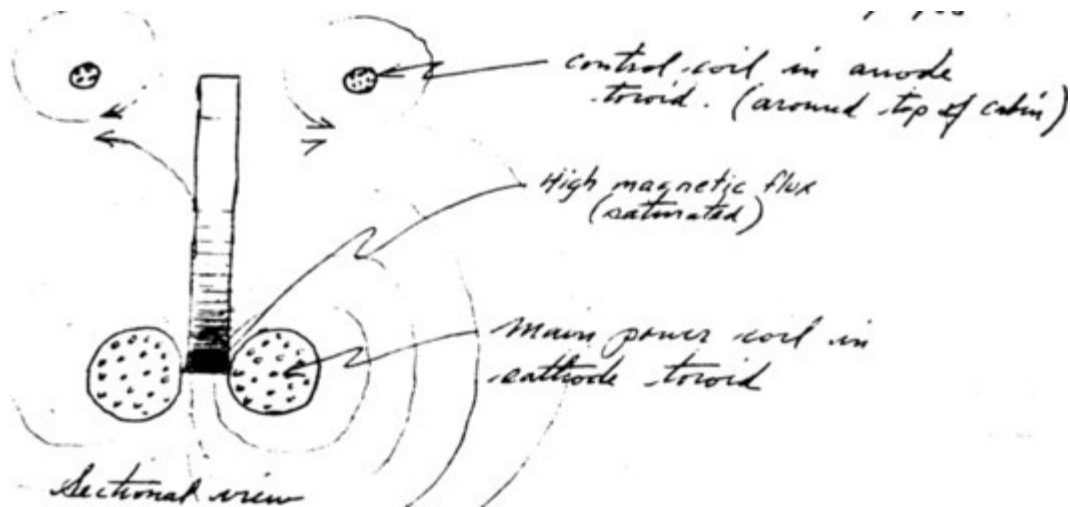 control coil in anode
toroid. (around top of cabin)
High magnetic flux
(saturated)
Main power coil in
cathode toroid
Sectional view